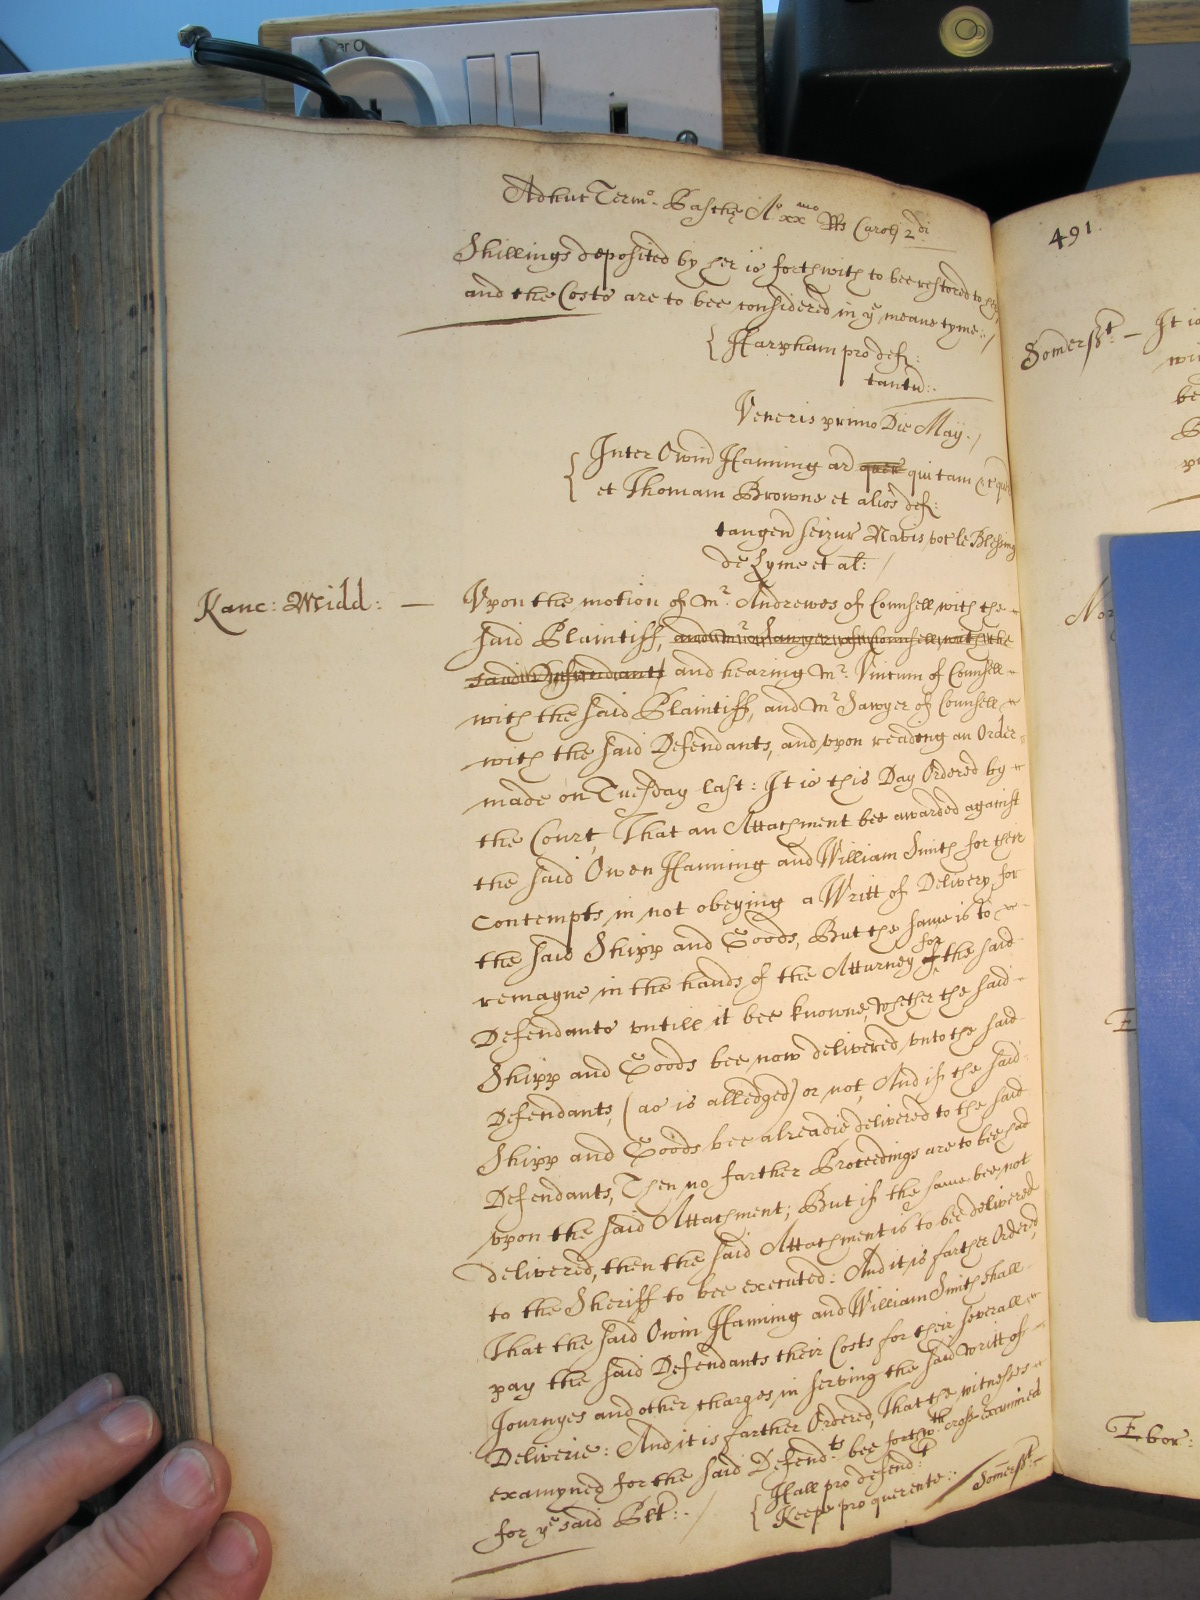 Adhuc Termo. Pasche Ao. xxmo Rs Caroli 2di
Shillings deposited by her is forthwith to bee restored to her,
and the Costs are to bee considered in ye meane tyme:/
Harpham pro def:
tantu:
Veneris primo Die Maij./
Inter Owin Hanning ar̃ quer qui tam &c quer
et Thomam Browne et alios def:
tangen̄ seizur Navis voc le Blessing
de Lyme et al: /
Kanc: Midd: — Vpon the motion of mr. Andrewes of Counsell with the
said Plaintiff, and mr Sawyer of Counsell with the
said Defendants and hearing mr. Vincum of Counsell
with the said Plaintiff, and mr Sawyer of Counsell
with the said Defendants, and vpon reading an Order
made on Tuesday last: It is this Day Ordered by
the Court, That an Attachment bee awarded against
the said Owen Hanning and William Smith for their
Contempts in not obeying a Writt of Delivery for
the said Shipp and Goods, But the same is to
remayne in the hands of the Atturney of for the said
Defendants vntill it bee knowne, whether the said
Shipp and Goods bee now delivered, vnto the said
Defendants, (as is alledged) or not, And if the said
Shipp and Goods bee alreadie delivered to the said
Defendants, Then no farther Proceedings are to bee had
vpon the said Attachment; But if the same bee not
delivered, then the said Attachment is to bee delivered
to the Sheriff to bee executed: And it is farther Ordered,
That the said Owin Hanning and William Smith shall
pay the said Defendants their Costs for their severall
Journyes and other charges in serving the said writt of
Deliverie: And it is farther Ordered, That the witnesses
examyned for the said Defendts bee forthwth cross-examined
for ye said Plt: /
Hall pro defend
Keepe pro querente:
Somersst
491.
Somersst: — It is
wi
be
Nor
E
Ebor: